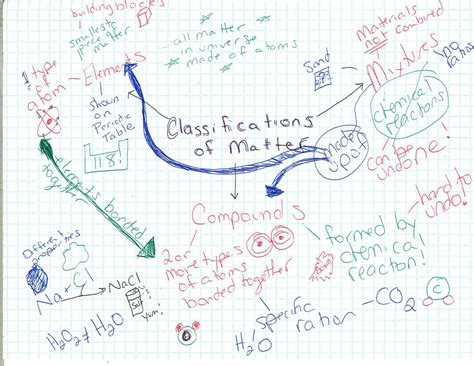 building blocks
smallest
piece of
matter
Elements
1 type
of
atom
shown
on
Periodic
Table
118!
* all matter
in universe
* made of atoms *
Sand
Materials
not combined
Mixtures
no
ratios
chemical
reactions
can be
undone!
Classifications
of Matter
made
up of
elements bonded
together
Compounds
2 or
more types
of atoms
bonded together
formed by
chemical
reaction!
hard to
undo!
Different
properties
Na + Cl
NaCl
Salt
Yum!
H2O2 ≠ H2O
specific
ration
H2O
CO2
C